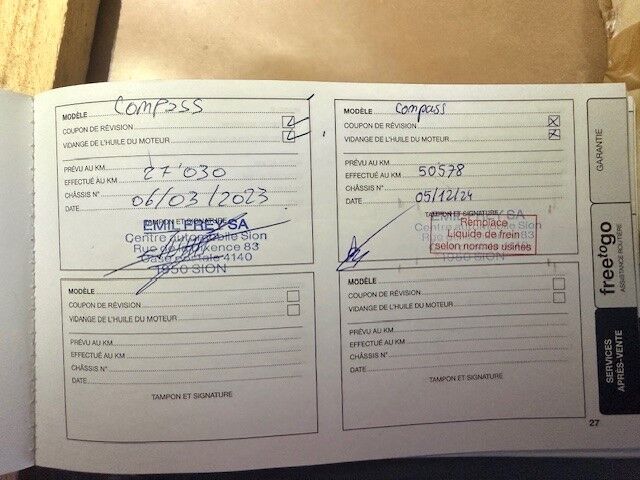 MODÈLE Compass
COUPON DE RÉVISION
VIDANGE DE L'HUILE DU MOTEUR
PRÉVU AU KM
EFFECTUÉ AU KM 27'030
CHÂSSIS N°
DATE 06/03/2023
TAMPON ET SIGNATURE
EMIL FREY SA
Centre automobile Sion
Rue de la Dixence 83
Case postale 4140
1950 SION
MODÈLE Compass
COUPON DE RÉVISION
VIDANGE DE L'HUILE DU MOTEUR
PRÉVU AU KM
EFFECTUÉ AU KM 50578
CHÂSSIS N°
DATE 05/12/24
TAMPON ET SIGNATURE
EMIL FREY SA
Remplacé
Liquide de frein
selon normes usines
1950 SION
MODÈLE
COUPON DE RÉVISION
VIDANGE DE L'HUILE DU MOTEUR
PRÉVU AU KM
EFFECTUÉ AU KM
CHÂSSIS N°
DATE
TAMPON ET SIGNATURE
MODÈLE
COUPON DE RÉVISION
VIDANGE DE L'HUILE DU MOTEUR
PRÉVU AU KM
EFFECTUÉ AU KM
CHÂSSIS N°
DATE
TAMPON ET SIGNATURE
GARANTIE
freetogo
ASSISTANCE ROUTIÈRE
SERVICES
APRÈS-VENTE
27